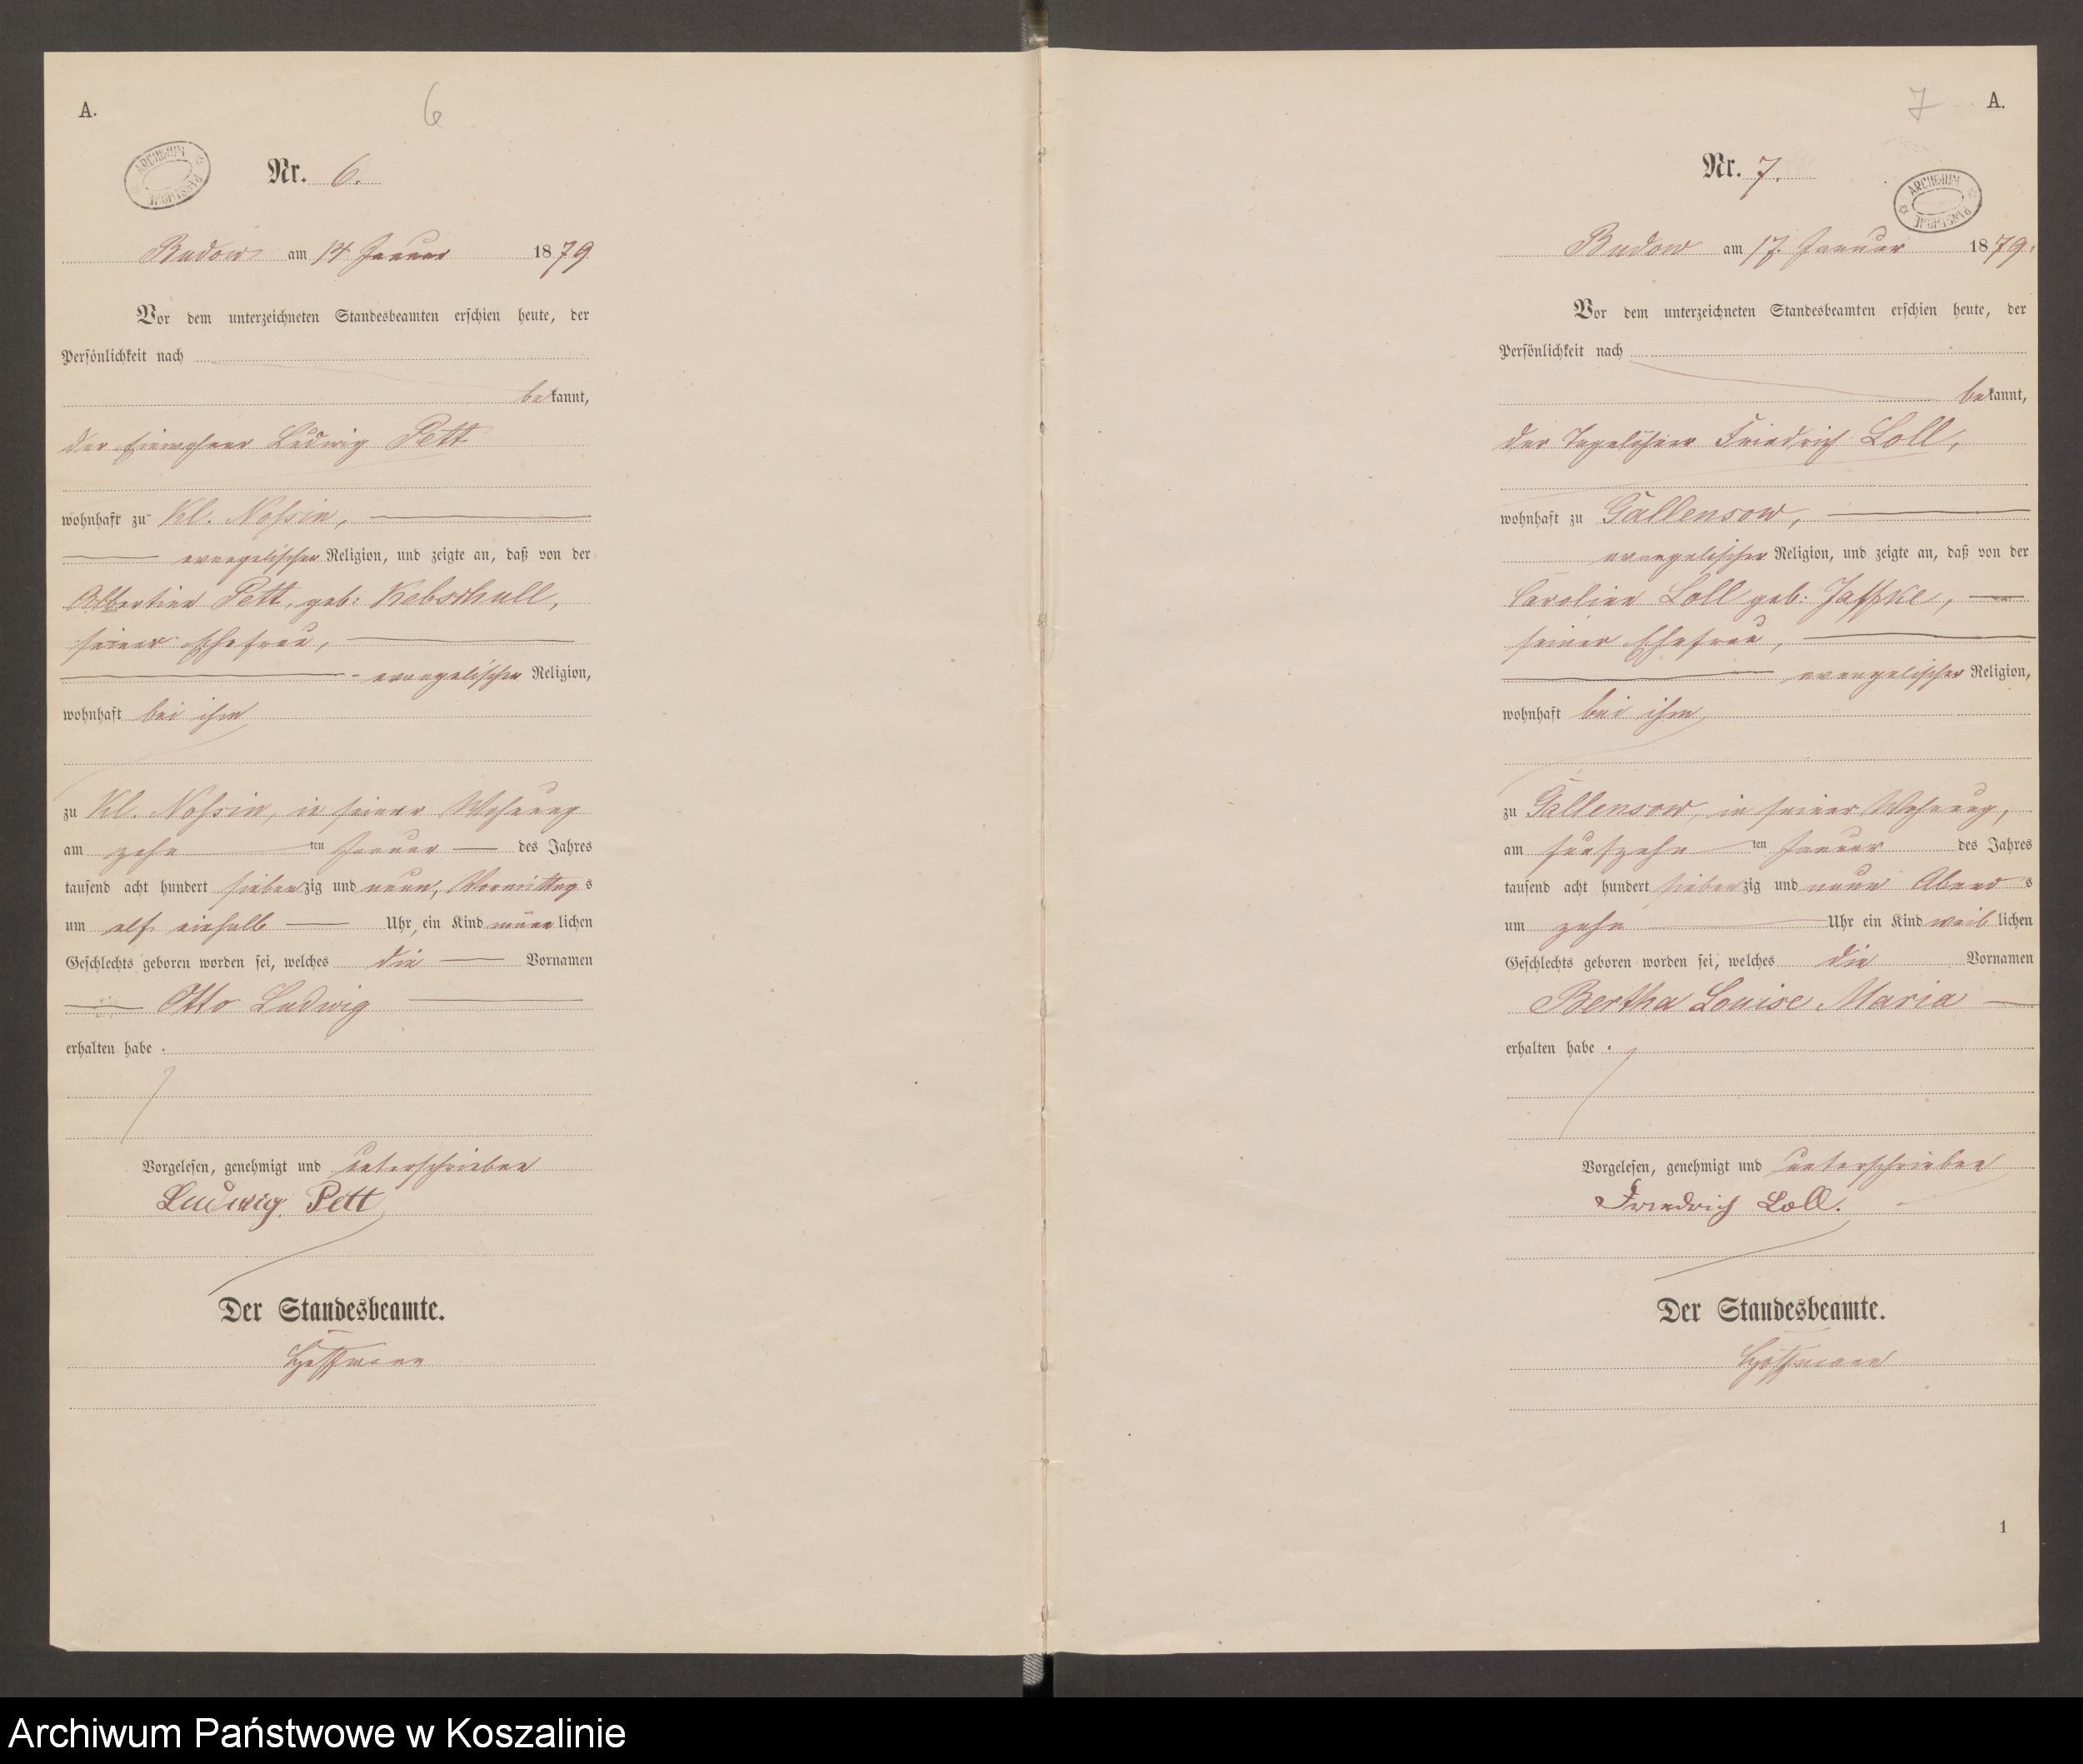 A.
6
ARCHIWUM PAŃSTWOWE
Nr. 6.
Budow am 14 Januar 1879
Vor dem unterzeichneten Standesbeamten erschien heute, der
Persönlichkeit nach
bekannt,
der Einwohner Ludwig Pett
wohnhaft zu Kl. Nossin,
evangelischer Religion, und zeigte an, daß von der
Albertine Pett, geb: Kebschull,
seiner Ehefrau,
evangelischer Religion,
wohnhaft bei ihm
zu Kl. Nossin, in seiner Wohnung
am zehn ten Januar des Jahres
tausend acht hundert siebenzig und neun, Vormittags
um elf einhalb Uhr, ein Kind männlichen
Geschlechts geboren worden sei, welches die Vornamen
Otto Ludwig
erhalten habe.
Vorgelesen, genehmigt und unterschrieben
Ludwig Pett
Der Standesbeamte.
Hoffmann
7
A.
Nr. 7.
ARCHIWUM PAŃSTWOWE
Budow am 17. Januar 1879.
Vor dem unterzeichneten Standesbeamten erschien heute, der
Persönlichkeit nach
bekannt,
der Tagelöhner Friedrich Loll,
wohnhaft zu Gallensow,
evangelischer Religion, und zeigte an, daß von der
Caroline Loll geb: Jaffke,
seiner Ehefrau,
evangelischer Religion,
wohnhaft bei ihm
zu Gallensow, in seiner Wohnung,
am fünfzehn ten Januar des Jahres
tausend acht hundert siebenzig und neun Abends
um zehn Uhr ein Kind weiblichen
Geschlechts geboren worden sei, welches die Vornamen
Bertha Louise Maria
erhalten habe.
Vorgelesen, genehmigt und unterschrieben
Friedrich Loll.
Der Standesbeamte.
Hoffmann
1
Archiwum Państwowe w Koszalinie